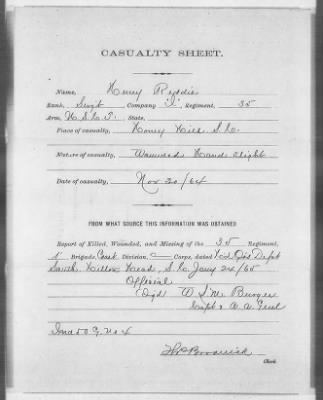 CASUALTY SHEET.
Name, Henry
Rank, Sergt Company "I" Regiment, 35
Arm, U.S.C.T. State,
Place of casualty, Honey Hill S.C.
Nature of casualty, Wounded Hand slight
Date of casualty, Nov 30/64
FROM WHAT SOURCE THIS INFORMATION WAS OBTAINED
Report of Killed, Wounded, and Missing of the 35 Regiment,
1 Brigade, Coast Division, Corps, dated Hd Qrs Dept
South. Hilton Head, S.C. Jany 24/65
Official
(Sigd) W L M Burger
Capt & A. A. Genl
Clerk.